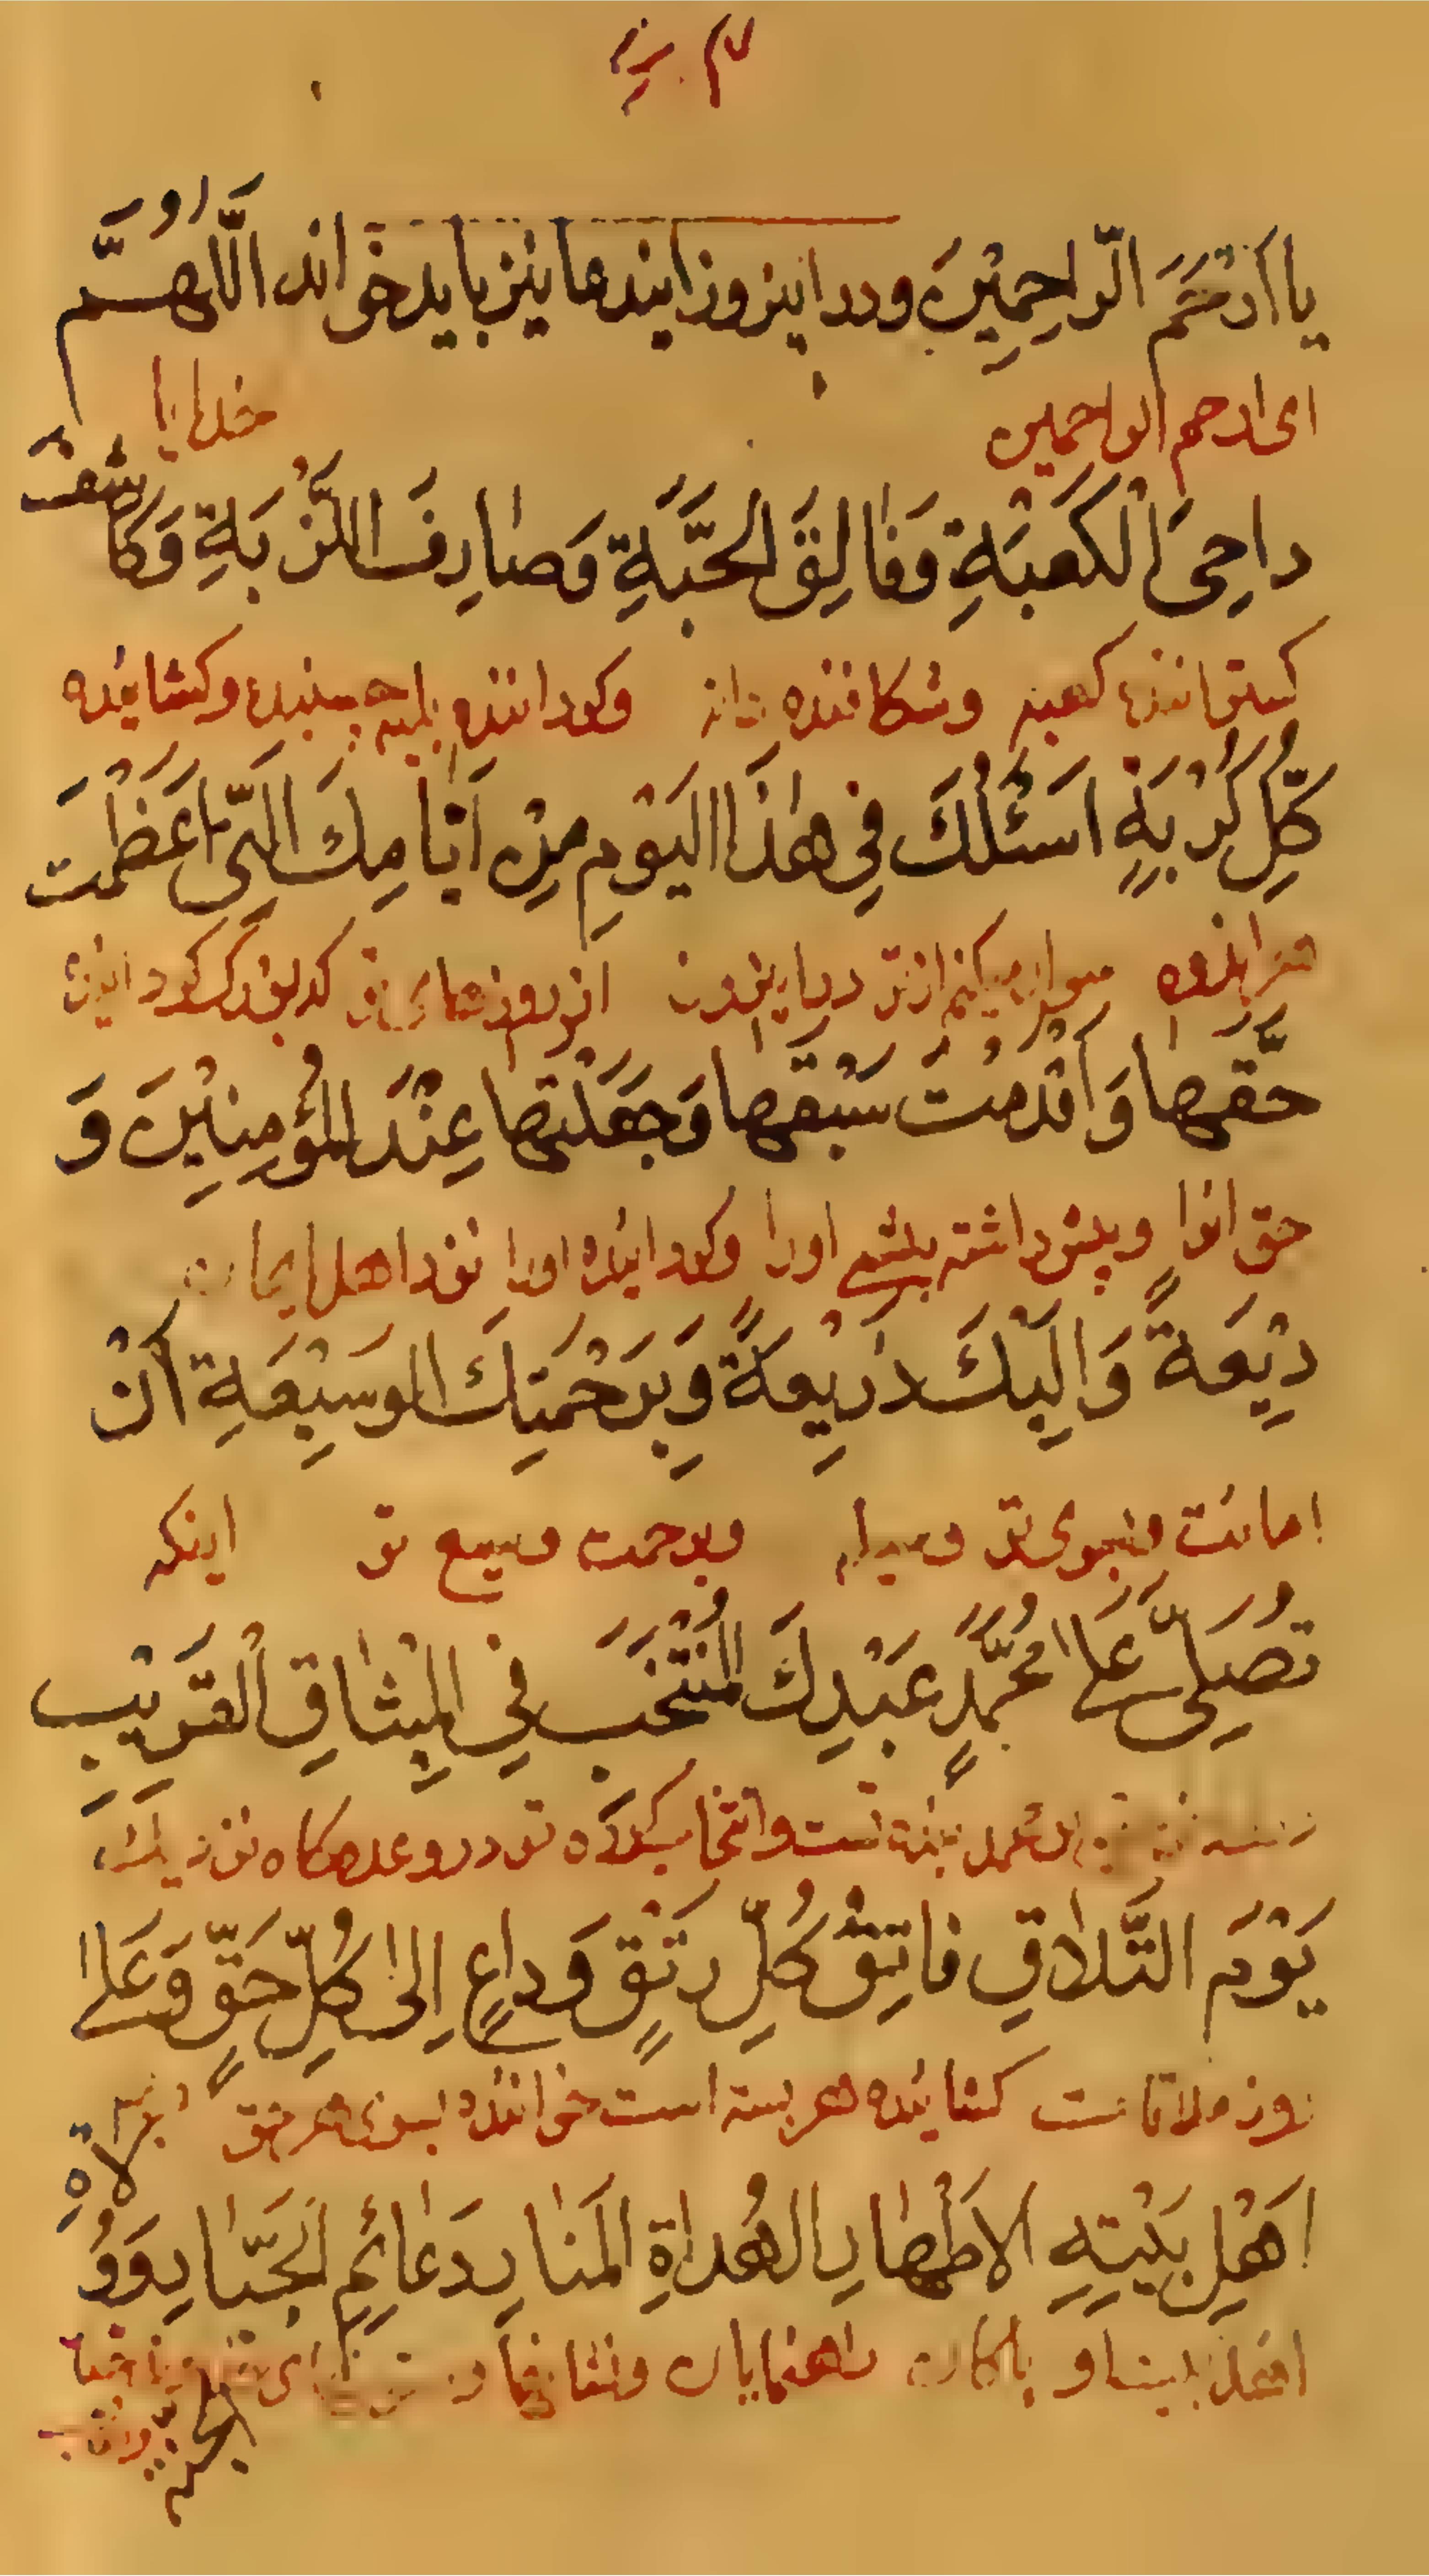 يا اَرْحَمَ الرّاحِمِيْنَ ودر اينروز ايندعا نيز بايد خواند اَللّهُمَّ
اى ارحم الراحمين خدايا
داحِىَ الْكَعْبَةِ وَفٰالِقَ الْحَبَّةِ وَصٰارِفَ اللَّزْبَةِ وَكٰاشِفَ
كستراننده كعبه وشكافنده دانه وكرداننده بليه وكشاينده
كُلِّ كُرْبَةٍ اَسْئَلُكَ فِي هٰذَا الْيَوْمِ مِنْ اَيّٰامِكَ الَّتِىٓ اَعْظَمْتَ
هر اندوه سوال ميكنم از تو در اين روز از روزهاى تو كه بزرك كردانيدى
حَقَّهٰا وَاَقْدَمْتَ سَبْقَهٰا وَجَعَلْتَهٰا عِنْدَ الْمُؤْمِنِيْنَ وَ
حق انرا وپيش داشته پيشى اورا وكردانيده اورا نزد اهل ايمان
دِيْعَةً وَاِلَيْكَ ذَرِيْعَةً وَبِرَحْمَتِكَ الْوَسِيْعَةِ اَنْ
امانت وبسوى تو وسيله وبرحمت وسيع تو اينكه
تُصَلِّىَ عَلىٰ مُحَمَّدٍ عَبْدِكَ الْمُنْتَخَبِ فِي الْمِيْثٰاقِ الْقَرِيْبِ
محمد بنده تست وانتخاب كرده تو در وعدهكاه نزديك
يَوْمَ التَّلاٰقِ فاتِقِ كُلِّ رَتْقٍ وَداعٍ اِلىٰ كُلِّ حَقٍّ وَعَلىٰ
روز ملاقات كشاينده هر بسته است خواننده بسوى هر حق
اَهْلِ بَيْتِهِ الاَطْهٰارِ الْهُداةِ الْمَنٰارِ دَعٰائِمِ الْجَبّٰارِ وَوُلاةِ
اهل بيت او پاكان راهنمايان ونشانها
الجنّة